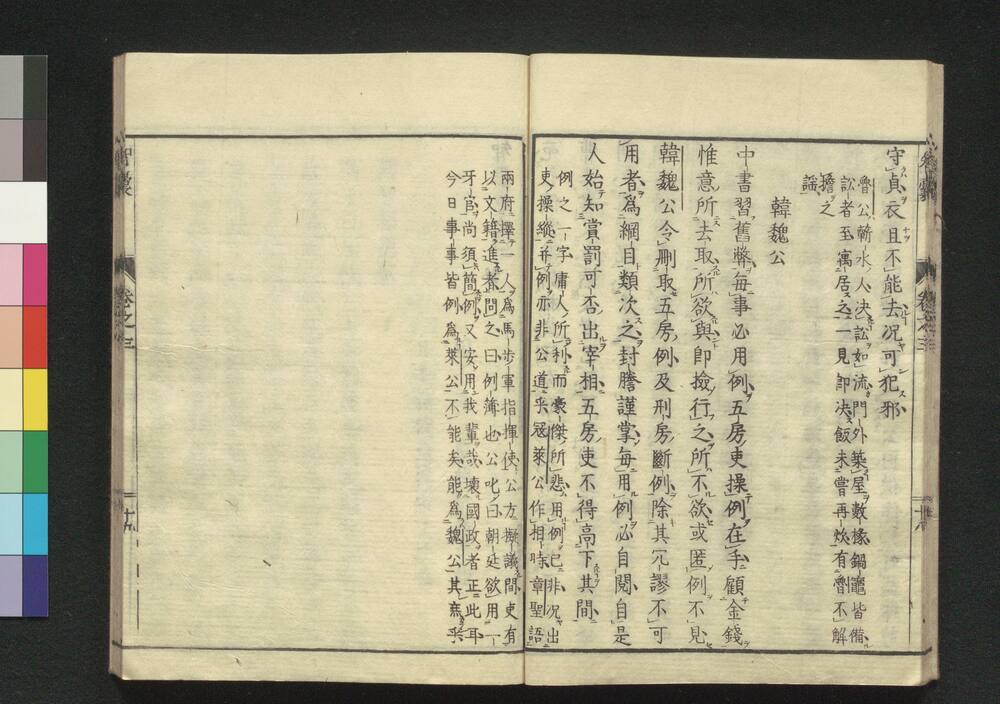 守貞衣且不能去况可犯邪
魯公蘄水人决訟如流門外築屋數椽鍋竈皆備
訟者至寓居之一見即决飯未嘗再炊有魯不解
擔之
謡
韓魏公
中書習舊弊每事必用例五房吏操例在手顧金錢
惟意所去取所欲與即撿行之所不欲或匿例不見
韓魏公令刪取五房例及刑房斷例除其冗謬不可
用者為綱目類次之封謄謹掌每用例必自閱自是
人始知賞罰可否出宰相五房吏不得高下其間
例之一字庸人所利而豪傑所悲用例已非况出
吏操縱并例亦非公道乎冦萊公作相時章聖語
兩府擇一人為馬步軍指揮使公方擬議間吏有
以文籍進者問之曰例簿也公叱曰朝廷欲用一
牙官尚須簡例又安用我輩哉壞國政者正此耳
今日事事皆例為萊公不能矣能為魏公其庶乎
智囊
卷之三
十九